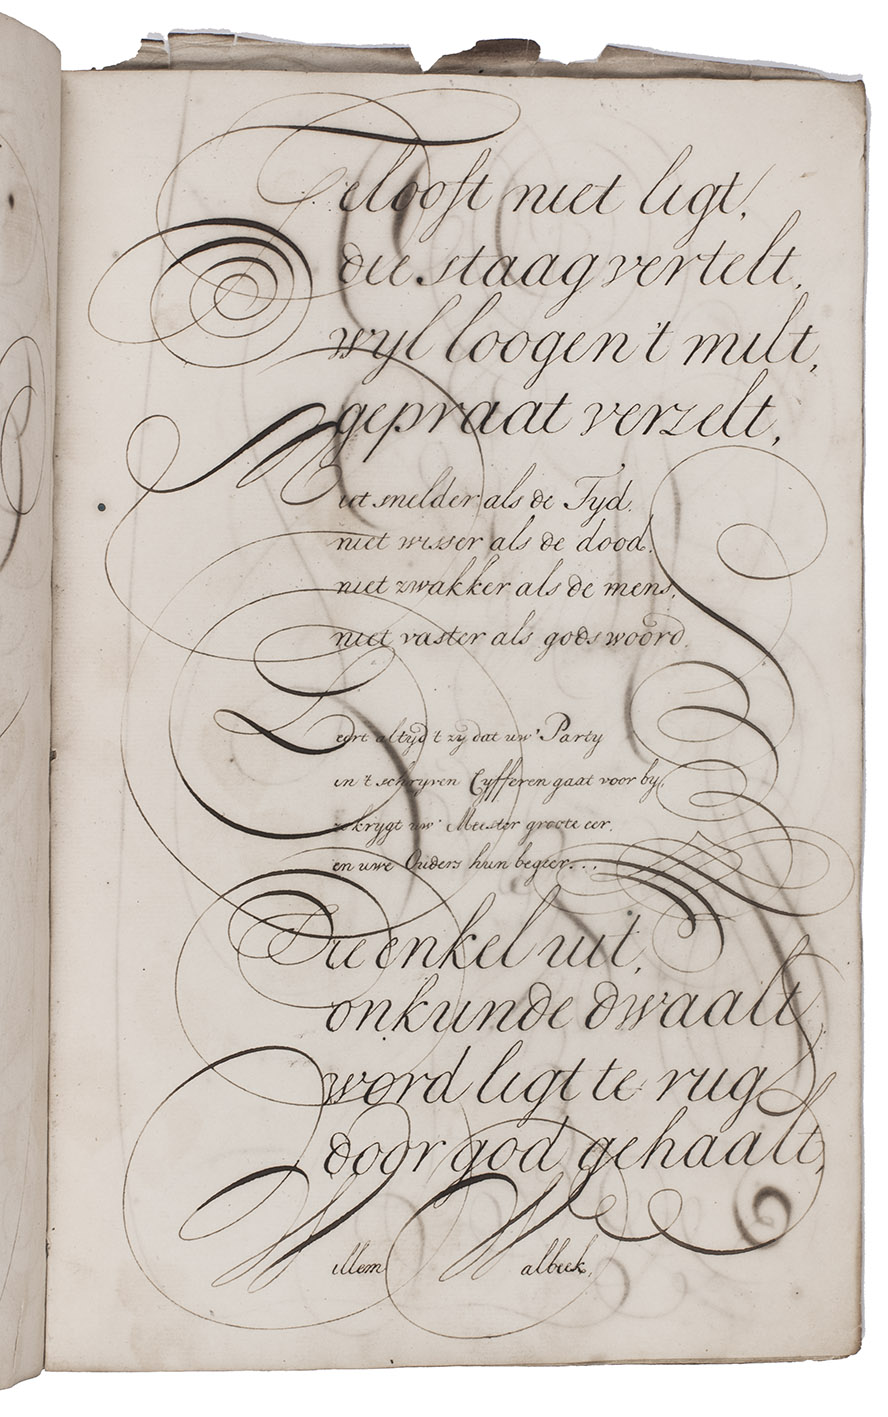 Gelooft niet ligt,
die staag vertelt,
wyl loogen 't milt,
gepraat verzelt,
Niet snelder als de Tyd,
niet wisser als de dood,
niet zwakker als de mens,
niet vaster als gods woord,
Leert altyd t zy dat uw' Party
in 't schryven Cyfferen gaat voor by,
zo krygt uw' Meester groote eer,
en uwe Ouders hun begeer...
Die enkel uit,
onkunde dwaalt
word ligt te rug
door god gehaalt,
Willem Walbeek,